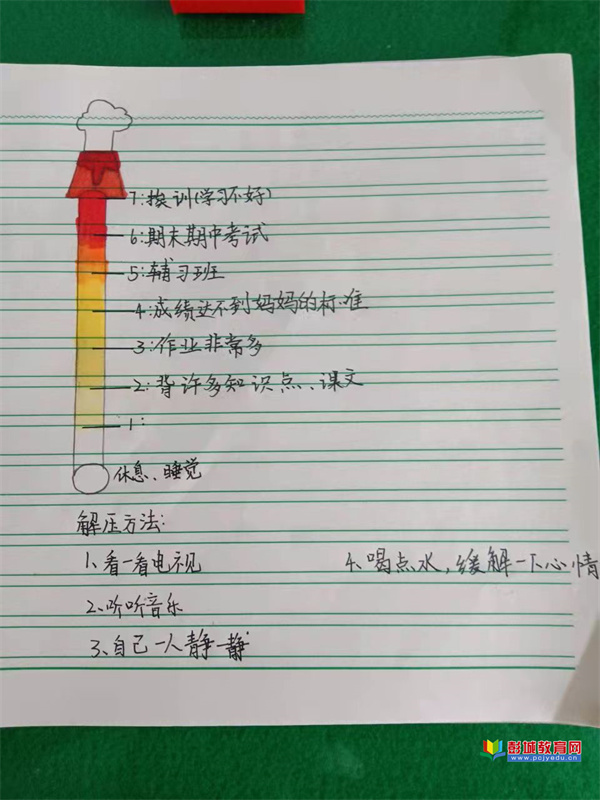 7:挨训(学习不好)
6:期末期中考试
5:辅习班
4:成绩达不到妈妈的标准
3:作业非常多
2:背许多知识点、课文
1:
休息、睡觉
解压方法:
1、看一看电视
4、喝点水,缓解一下心情
2、听听音乐
3、自己一人静一静
彭城教育网
www.pcjyedu.cn